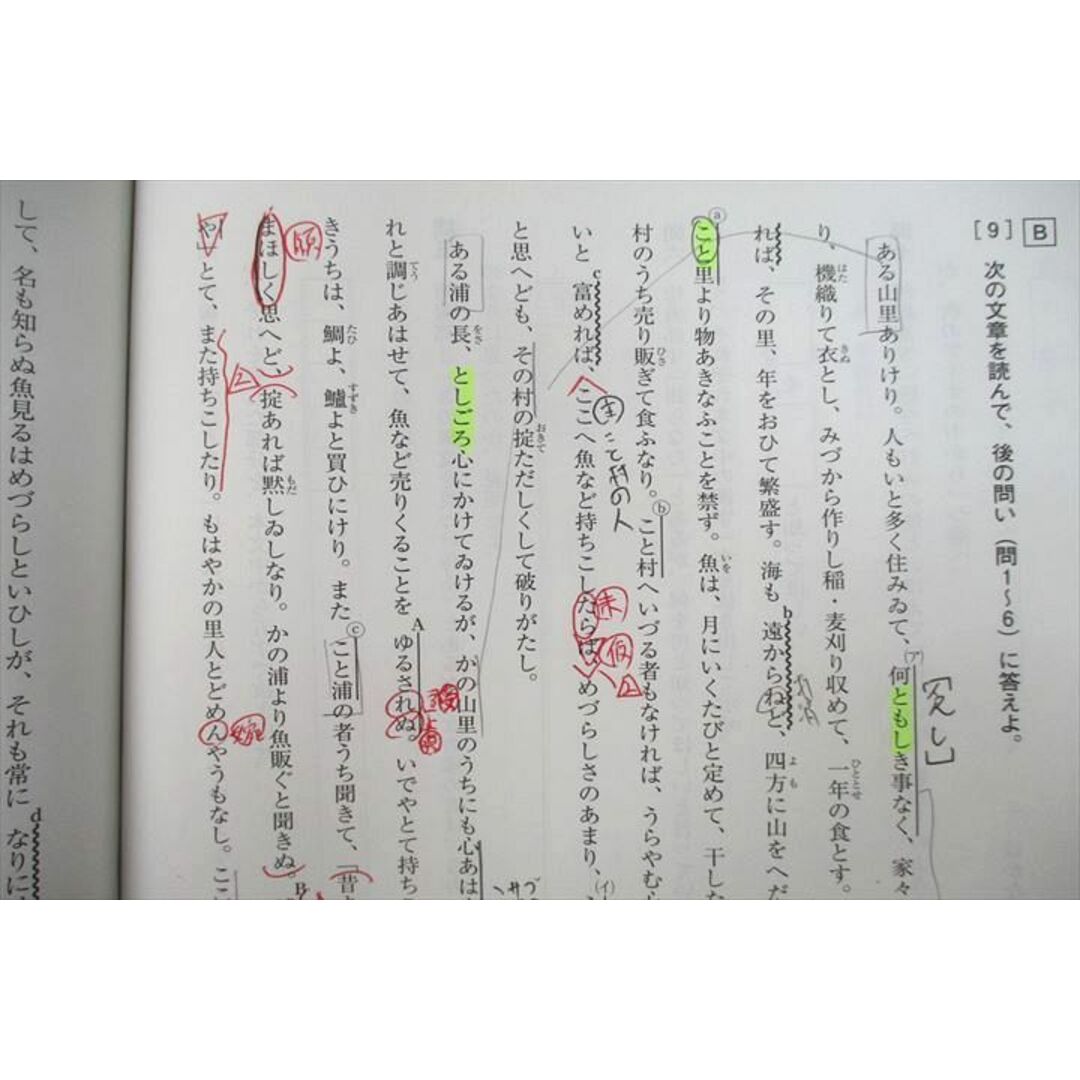 B
[9] 次の文章を読んで、後の問い（問1～6）に答えよ。
ある山里ありけり。人もいと多く住みゐて、何ともしき事なく、家々
り、機織りて衣とし、みづから作りし稲・麦刈り収めて、一年の食とす。
れば、その里、年をおひて繁盛す。海も遠からねど、四方に山をへだ
こと里より物あきなふことを禁ず。魚は、月にいくたびと定めて、干した
村のうち売り販ぎて食ふなり。こと村へいづる者もなければ、うらやむ
いと富めれば、ここへ魚など持ちこしたらば、めづらしさのあまり、
と思へども、その村の掟ただしくして破りがたし。
ある浦の長、としごろ心にかけてゐけるが、かの山里のうちにも心あは
れと調じあはせて、魚など売りくることを ゆるされぬ。いでやとて持ち
きうちは、鯛よ、鱸よと買ひにけり。また こと浦の者うち聞きて、「昔
まほしく思へど、掟あれば黙しゐしなり。かの浦より魚販ぐと聞きぬ。
や」とて、また持ちこしたり。もはやかの里人とどめんやうもなし。
して、名も知らぬ魚見るはめづらしといひしが、それも常に なりに
(ア)
(イ)
a
b
c
A
B
b
c
d
はた
きぬ
ひととせ
よも
いを
ひさ
おきて
をさ
てう
たひ
すずき
もだ
「貧し」
主
こと村の人
未
仮
願
婉